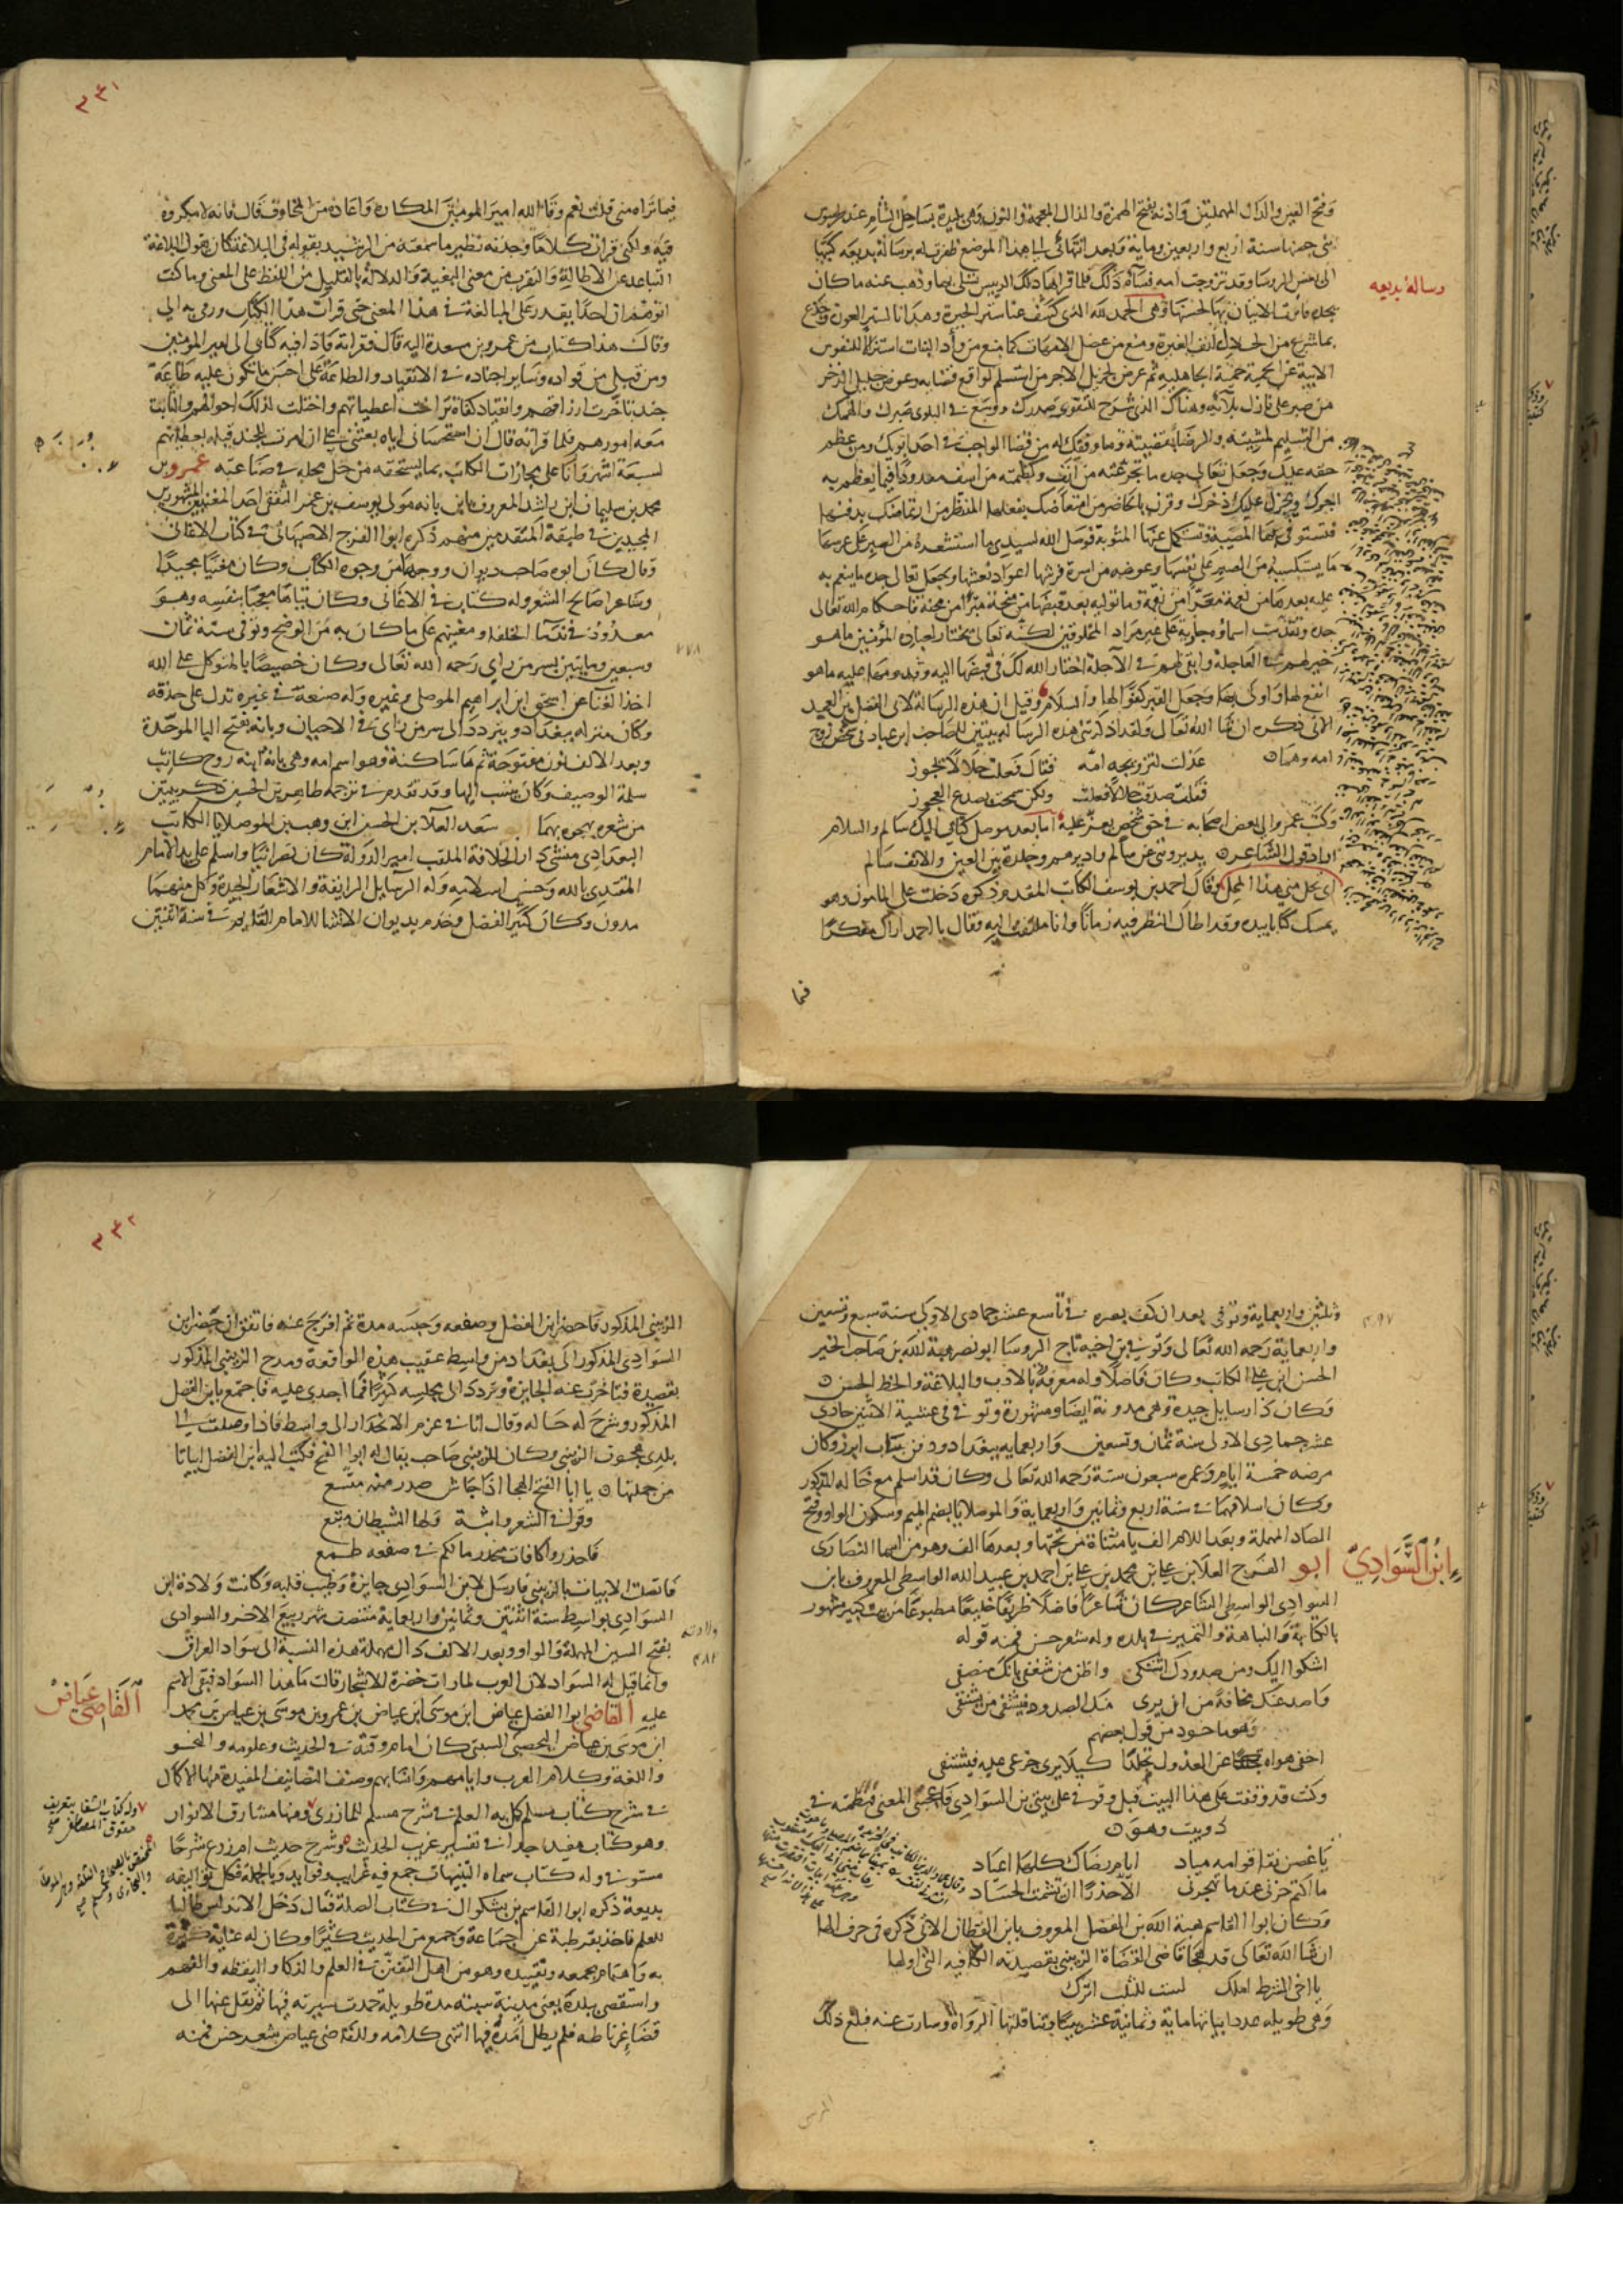 وفتح العين والدال المهملتين واذنه بفتح الهمزة والذال المعجمة والنون وهى بليدة بساحل الشام عند طرسوس
بنى حصنها سنة اربع واربعين وماية وبعد انتهائى الى هذا الموضع ظفرت له برسالة بديعه كتبها
رسالة بديعه
الى بعض الروسا وقد تزوجت امه فساه ذلك فلما قراها ذلك الرييس تسلى بها وذهب عنه ماكان
يجده فاثرت الاتيان بها لحسنها وهى الحمد لله الذى كشف عنا ستر الحيرة وهدانا لستر العورة وجدع
بما شرع من الحلال انف الغيرة ومنع من عضل الامهات كما منع من وأد البنات استنزالا للنفوس
الابية عن الحمية حمية الجاهلية ثم عرض لجزيل الاجر من استسلم لواقع قضايه وعوض جليل الذخر
من صبر على نازل بلائه وهناك الذى شرح للتقوى صدرك ووسع فى البلوى صبرك والهمك
من التسليم لمشيئته والرضا بقضيته وما وفقك له من قضا الواجب فى احد ابويك ومن عظم
حقه عليك وجعل تعالى جده ما تجرعته من انف وكظمته من اسف معدودا فيما يعظم به
اجرك ويجزل عليه ذخرك وقرن بالحاضر من امتعاضك بفعلها المنتظر من ارتماضك بدفنها
فتستوفى بها المصيبة وتستكمل عنها المثوبة فوصل الله لسيدى ما استشعره من الصبر على عرسها
ما يستكسبه من الصبر على نفسها وعوضه من اسرة فرشها اعواد نعشها وجعل تعالى جده ما ينعم به
عليه بعدها من نعمة معرا من نقمة وما يوليه بعد قبضها من منحة مبرا من محنة فاحكام الله تعالى
جده وتقدست اسماؤه جارية على غير مراد المخلوقين لكنه تعالى يختار لعباده المؤمنين ما هو
خير لهم فى العاجلة وابقى لهم فى الآجلة اختار الله لك فى قبضها اليه وقدومها عليه ما هو
انفع لها واولى بها وجعل القبر كفؤا لها والسلام وقيل ان هذه الرسالة لابى الفضل بن العميد
الاتى ذكره ان شا الله تعالى ولقد اذكرتنى هذه الرسالة بيتين للصاحب ابن عباد فى شخص زوج
امه وهما
عذلت لتزويجه امه فقال فعلت حلالا يجوز
فقلت صدقت حلالا فعلت ولكن سمحت بصدع العجوز
وكتب عمرو الى بعض اصحابه فى حق شخص يعز عليه اما بعد موصل كتابى اليك سالم والسلام
اراد قول الشاعر يديروننى عن سالم واديرهم وجلدة بين العين والانف سالم
اى يحل منى هذا المحل وقال احمد بن يوسف الكاتب المقدم ذكره دخلت على المامون وهو
يمسك كتابا بيده وقد اطال النظر فيه زمانا وانا ملتفت اليه فقال يا احمد اراك مفكرا
فيما
٢٣١
فيما تراه منى قلت نعم وقا الله امير المومنين المكاره واعاذه من المخاوف قال فانه لا مكروه
فيه ولكنى قرات كلاما وجدته نظير ما سمعته من الرشيد يقوله فى البلاغة كان يقول البلاغة
التباعد عن الاطالة والتقرب من معنى البغية والدلالة بالقليل من اللفظ على المعنى وما كنت
اتوهم ان احدا يقدر على المبالغة فى هذا المعنى حتى قرات هذا الكتاب ورمى به الى
وقال هذا كتاب من عمرو بن مسعدة اليه قال فقراته فاذا فيه كتابى الى امير المومنين
ومن قبلى من قواده وساير اجناده فى الانقياد والطاعة على احسن ما تكون عليه طاعة
جند تاخرت ارزاقهم وانقياد كفاة تراخت اعطياتهم واختلت لذلك احوالهم والتاثت
معه امورهم فلما قراته قال ان استحسانى اياه بعثنى على ان امرت للجند قبله بعطياتهم
لسبعة اشهر وانا على مجازات الكاتب بما يستحقه من حل محله فى صناعته عمرو بن
ابن بانه
محمد بن سليمان ابن راشد المعروف بابن بانه مولى يوسف بن عمر الثقفى احد المغنيين المشهورين
المجيدين فى طبقة المتقدمين منهم ذكره ابو الفرج الاصبهانى فى كتاب الاغانى
وقال كان ابوه صاحب ديوان ووجها من وجوه الكتاب وكان مغنيا مجيدا
وشاعرا صالح الشعر وله كتاب فى الاغانى وكان تياها معجبا بنفسه وهو
معدود فى ندما الخلفا ومغنيهم على ما كان به من الوضح وتوفى سنة ثمان
٢٧٨
وسبعين وماتين بسر من راى رحمه الله تعالى وكان خصيصا بالمتوكل على الله
اخذ الغنا عن اسحق ابن ابراهيم الموصلى وغيره وله صنعة فى غيره تدل على حذقه
وكان منزله ببغداد ويتردد الى سر من راى فى الاحيان وبانه بفتح البا الموحدة
وبعد الالف نون مفتوحة ثم ها ساكنة وهو اسم امه وهى بانة ابنة روح كاتب
سلمة الوصيف وكان ينسب اليها وقد تقدم فى ترجمه طاهر بن الحسين ذكر بيتين
من شعره يهجوه بهما سعد العلا بن الحسن ابن وهب بن الموصلايا الكاتب
البغدادى منشى دار الخلافة الملقب امين الدولة كان نصرانيا واسلم على يد الامام
المقتدى بالله وحسن اسلامه وله الرسايل الرايقة والاشعار الجيدة وكل منهما
مدون وكان كثير الفضل وخدم بديوان الانشا للامام القايم فى سنة اثنتين
٤٩٧
وثلثين واربعماية وتوفى بعد ان كف بصره فى تاسع عشر جمادى الاولى سنة سبع وتسعين
واربعماية رحمه الله تعالى وتوفى بن اخيه تاج الروسا ابو نصر هبة الله بن صاحب الخبر
الحسن ابن على الكاتب وكان فاضلا وله معرفة بالادب والبلاغة والخط الحسن
وكان ذا رسايل جيدة وهى مدونة ايضا ومشهورة وتوفى فى عشية الاثنين حادى
عشر جمادى الاولى سنة ثمان وتسعين واربعمايه ببغداد ودفن بباب ابرز وكان
مرضه خمسة ايام وعمره سبعون سنة رحمه الله تعالى وكان قد اسلم مع خاله المذكور
وكان اسلامهما فى سنة اربع وثمانين واربعماية والموصلايا بضم الميم وسكون الواو وفتح
الصاد المهملة وبعد اللام الف يا مثناة من تحتها وبعدها الف وهو من اسما النصارى
ابن السوادى
ابو الفرج العلا بن على بن محمد بن على بن احمد بن عبيد الله الواسطى المعروف بابن
السوادى الواسطى الشاعر كان شاعرا فاضلا ظريفا خليعا مطبوعا من بيت كبير مشهور
بالكتابة والنباهة والتميز فى بلده وله شعر حسن فمنه قوله
اشكوا اليك ومن صدودك اشتكى واظن من شغفى بانك منصفى
واصد عنك مخافة من ان يرى منك الصدود فيشتفى من يشتفى
وهو ماخوذ من قول بعضهم
اخفى هواه عن العذول تجلدا كيلا يرى جزعى عليه فيشتفى
وكنت قد وقفت على هذا البيت قبل وقوفى على بيتى بن السوادى فاعجبنى المعنى فنظمته فى
دوبيت وهو
يا غصن نقا قوامه مياد ايام رضاك كلها اعياد
ما اكتم حزنى عندما تهجرنى الا حذرا ان تشمت الحساد
وكان ابو القاسم هبة الله بن الفضل المعروف بابن القطان الاتى ذكره فى حرف الها
ان شا الله تعالى قد هجا قاضى القضاة الزينبى بقصيدته الكافيه التى اولها
يا اخى الشرط املك لست للثلب اترك
وهى طويله عدد ابياتها ماية وثمانية عشر بيتا وتناقلتها الرواة وسارت عنه فبلغ ذلك
٢٣٢
الزينبى المذكور فاحضر ابن الفضل وصفعه وحبسه مدة ثم افرج عنه فاتفق ان حضر ابن
السوادى المذكور الى بغداد من واسط عقيب هذه الواقعة ومدح الزينبى المذكور
بقصيدة فتاخرت عنه الجايزة وتردد الى مجلسه كثيرا فما اجدى عليه فاجتمع بابن الفضل
المذكور وشرح له حاله وقال انا فى عزم الانحدار الى واسط فاذا وصلت الى
بلدى هجوت الزينبى وكان للزينبى صاحب يقال له ابو الفتح فكتب اليه ابن الفضل ابياتا
من جملتها يا ابا الفتح الهجا اذا جاش صدر منه متسع
وقوافى الشعر واثبة ولها الشيطان متبع
فاحذروا كافات منحدر ما لكم فى صفعه طمع
فاتصلت الابيات بالزينبى فارسل لابن السوادى جايزة وطيب قلبه وكانت ولادة ابن
السوادى بواسط سنة اثنتين وثمانين واربعماية منتصف شهر ربيع الاخر والسوادى
ولادته ٤٨٢
بفتح السين المهملة والواو وبعد الالف دال مهملة هذه النسبة الى سواد العراق
وانما قيل له السواد لان العرب لما رات خضرة الاشجار قالت ما هذا السواد فبقى الاسم
القاضى عياض
عليه القاضى ابو الفضل عياض ابن موسى ابن عياض بن عمرو بن موسى بن عياض بن محمد
ابن موسى بن عياض اليحصبى السبتى كان امام وقته فى الحديث وعلومه والنحو
واللغة وكلام العرب وايامهم وانسابهم وصنف التصانيف المفيدة منها الاكمال
وله كتاب الشفا بتعريف
حقوق المصطفى صح
فى شرح كتاب مسلم كمل به المعلم فى شرح مسلم للمازرى ومنها مشارق الانوار
وهو كتاب مفيد جدا فى تفسير غريب الحديث وشرح حديث ام زرع شرحا
مستوفى وله كتاب سماه التنبيهات جمع فيه غرايب وفوايد وبالجملة فكل تواليفه
بديعة ذكره ابو القاسم بن بشكوال فى كتاب الصلة فقال دخل الاندلس طالبا
للعلم فاخذ بقرطبة عن جماعة وجمع من الحديث كثيرا وكان له عناية كثيرة
به واهتمام بجمعه وتقييده وهو من اهل التفنن فى العلم والذكا واليقظه والفهم
واستقضى ببلدة يعنى مدينة سبتة مدة طويلة حمدت سيرته فيها ثم نقل عنها الى
قضا غرناطه فلم يطل امده فيها انتهى كلامه وللقاضى عياض شعر حسن فمنه